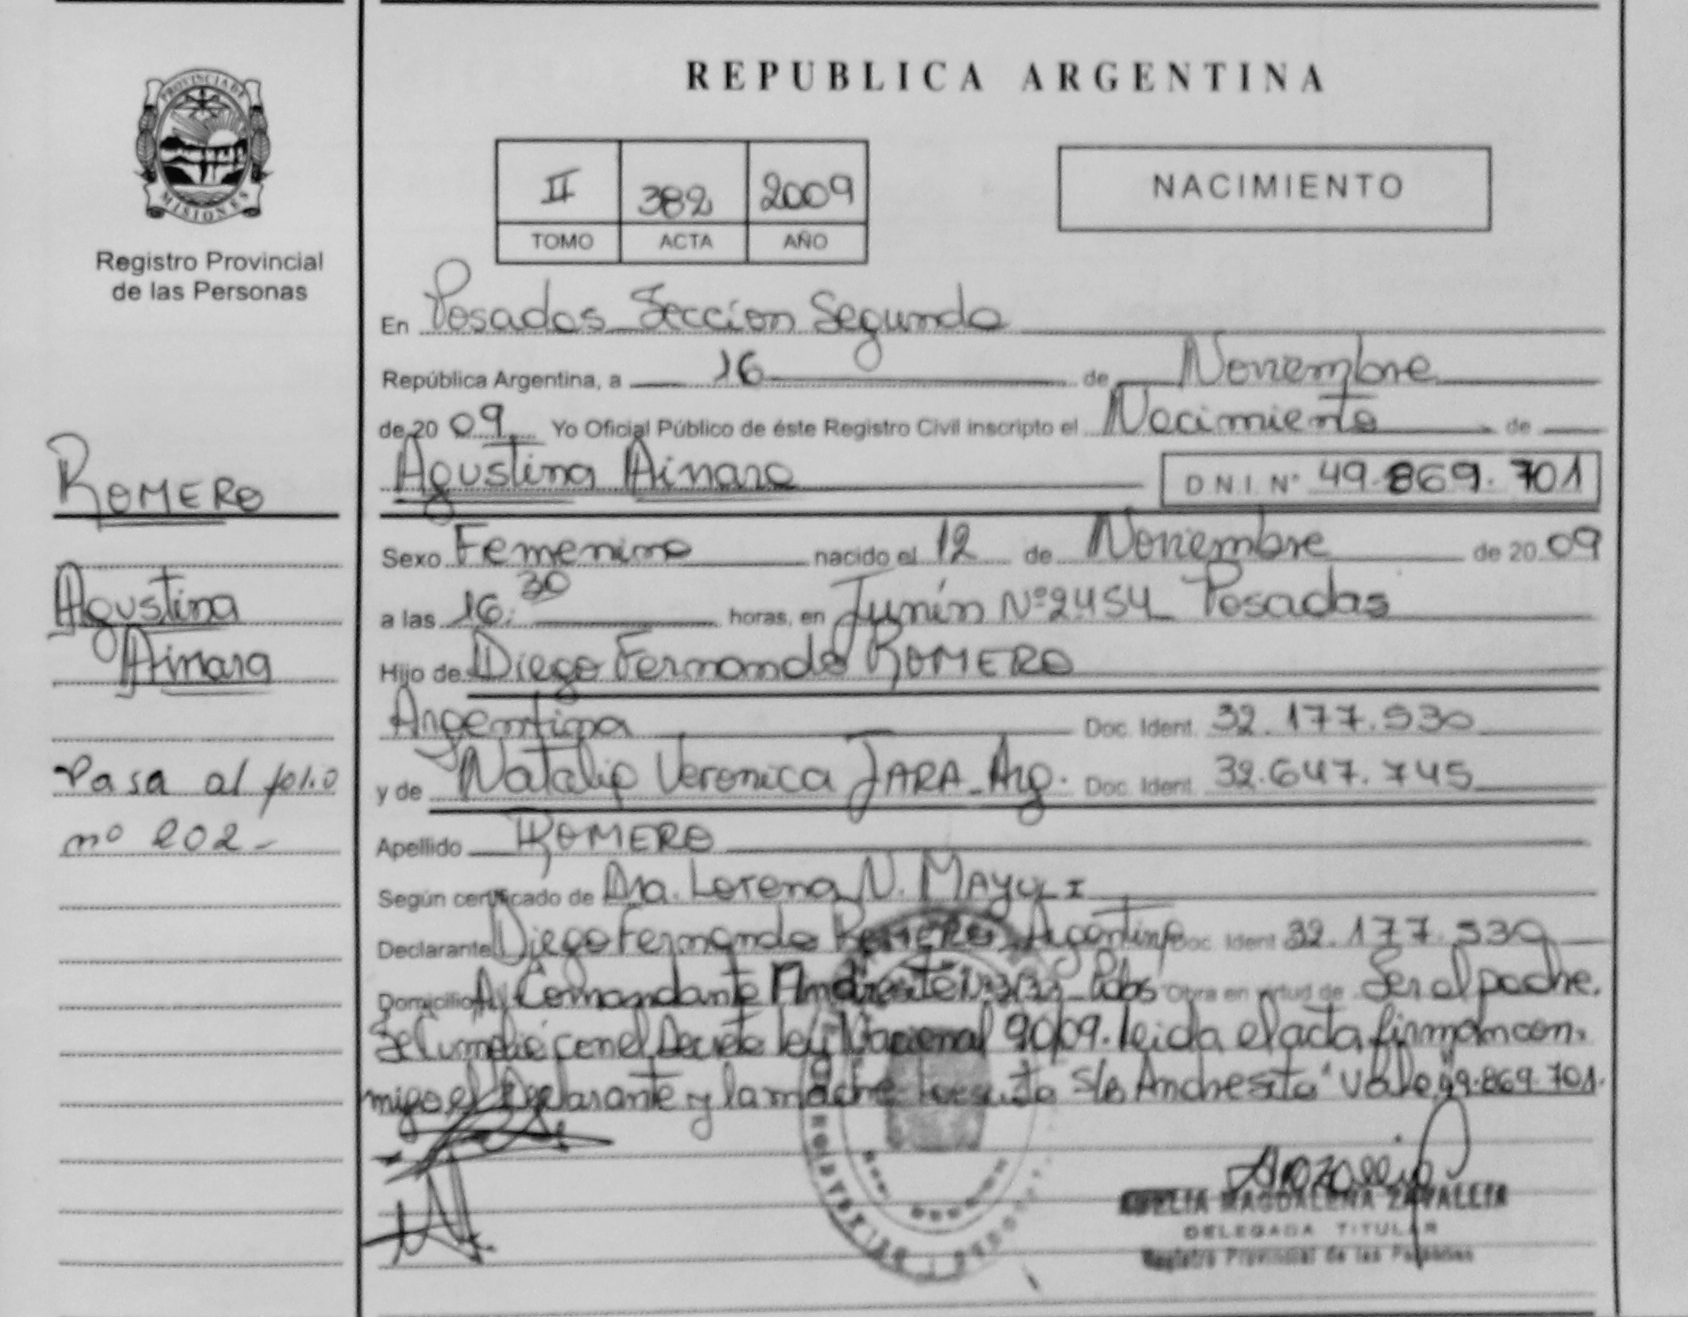 REPUBLICA ARGENTINA
PROVINCIA DE
MISIONES
Registro Provincial
de las Personas
II 382 2009
TOMO ACTA AÑO
NACIMIENTO
En Posadas Seccion Segunda
República Argentina, a 16 de Noviembre
de 2009 Yo Oficial Público de éste Registro Civil inscripto el Nacimiento de
Agustina Ainara D.N.I. Nº 49.869.701
Sexo Femenino nacido el 12 de Noviembre de 2009
a las 16:30 horas, en Junín Nº 2454 Posadas
Hijo de Diego Fernando ROMERO
Argentina Doc. Ident. 32.177.530
y de Natalia Veronica JARA - Arg. Doc. Ident. 32.647.745
Apellido ROMERO
Según certificado de Dra. Lorena N.
Declarante Diego Fernando ROMERO Argentina Doc. Ident. 32.177.530
Domicilio Av Comandante Pdas Obra en virtud de Ser el padre.
Se cumplió con el Decreto ley Nacional 90/09. leida el acta firman con-
migo el Declarante y la madre s/b Andresito" Vale 49.869.701.
ROMERO
Agustina
Ainara
Pasa al folio
nº 202-
MAGDALENA ZAVALLIA
DELEGADA TITULAR
Registro Provincial de las Personas